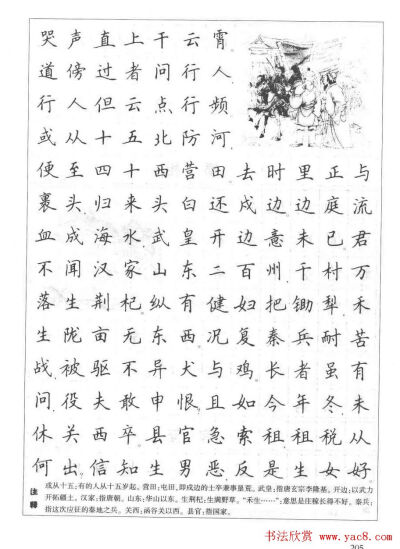 哭声直上干云霄
道傍过者问行人
行人但云点行频
或从十五北防河
便至四十西营田去时里正与
裹头归来头白还戍边边庭流
血成海水武皇开边意未已君
不闻汉家山东二百州千村万
落生荆杞纵有健妇把锄犁禾
生陇亩无东西况复秦兵耐苦
战被驱不异犬与鸡长者虽有
问役夫敢申恨且如今年冬未
休关西卒县官急索租租税从
何出信知生男恶反是生女好
注释
或从十五:有的人从十五岁起。营田:屯田,即戍边的士卒兼事垦荒。武皇:指唐玄宗李隆基。开边:以武力
开拓疆土。汉家:指唐朝。山东:华山以东。生荆杞:生满野草。“禾生……”:意思是庄稼长得不好。秦兵:
指这次应征的秦地之兵。关西:函谷关以西。县官:指国家。
书法欣赏 www.yac8.com